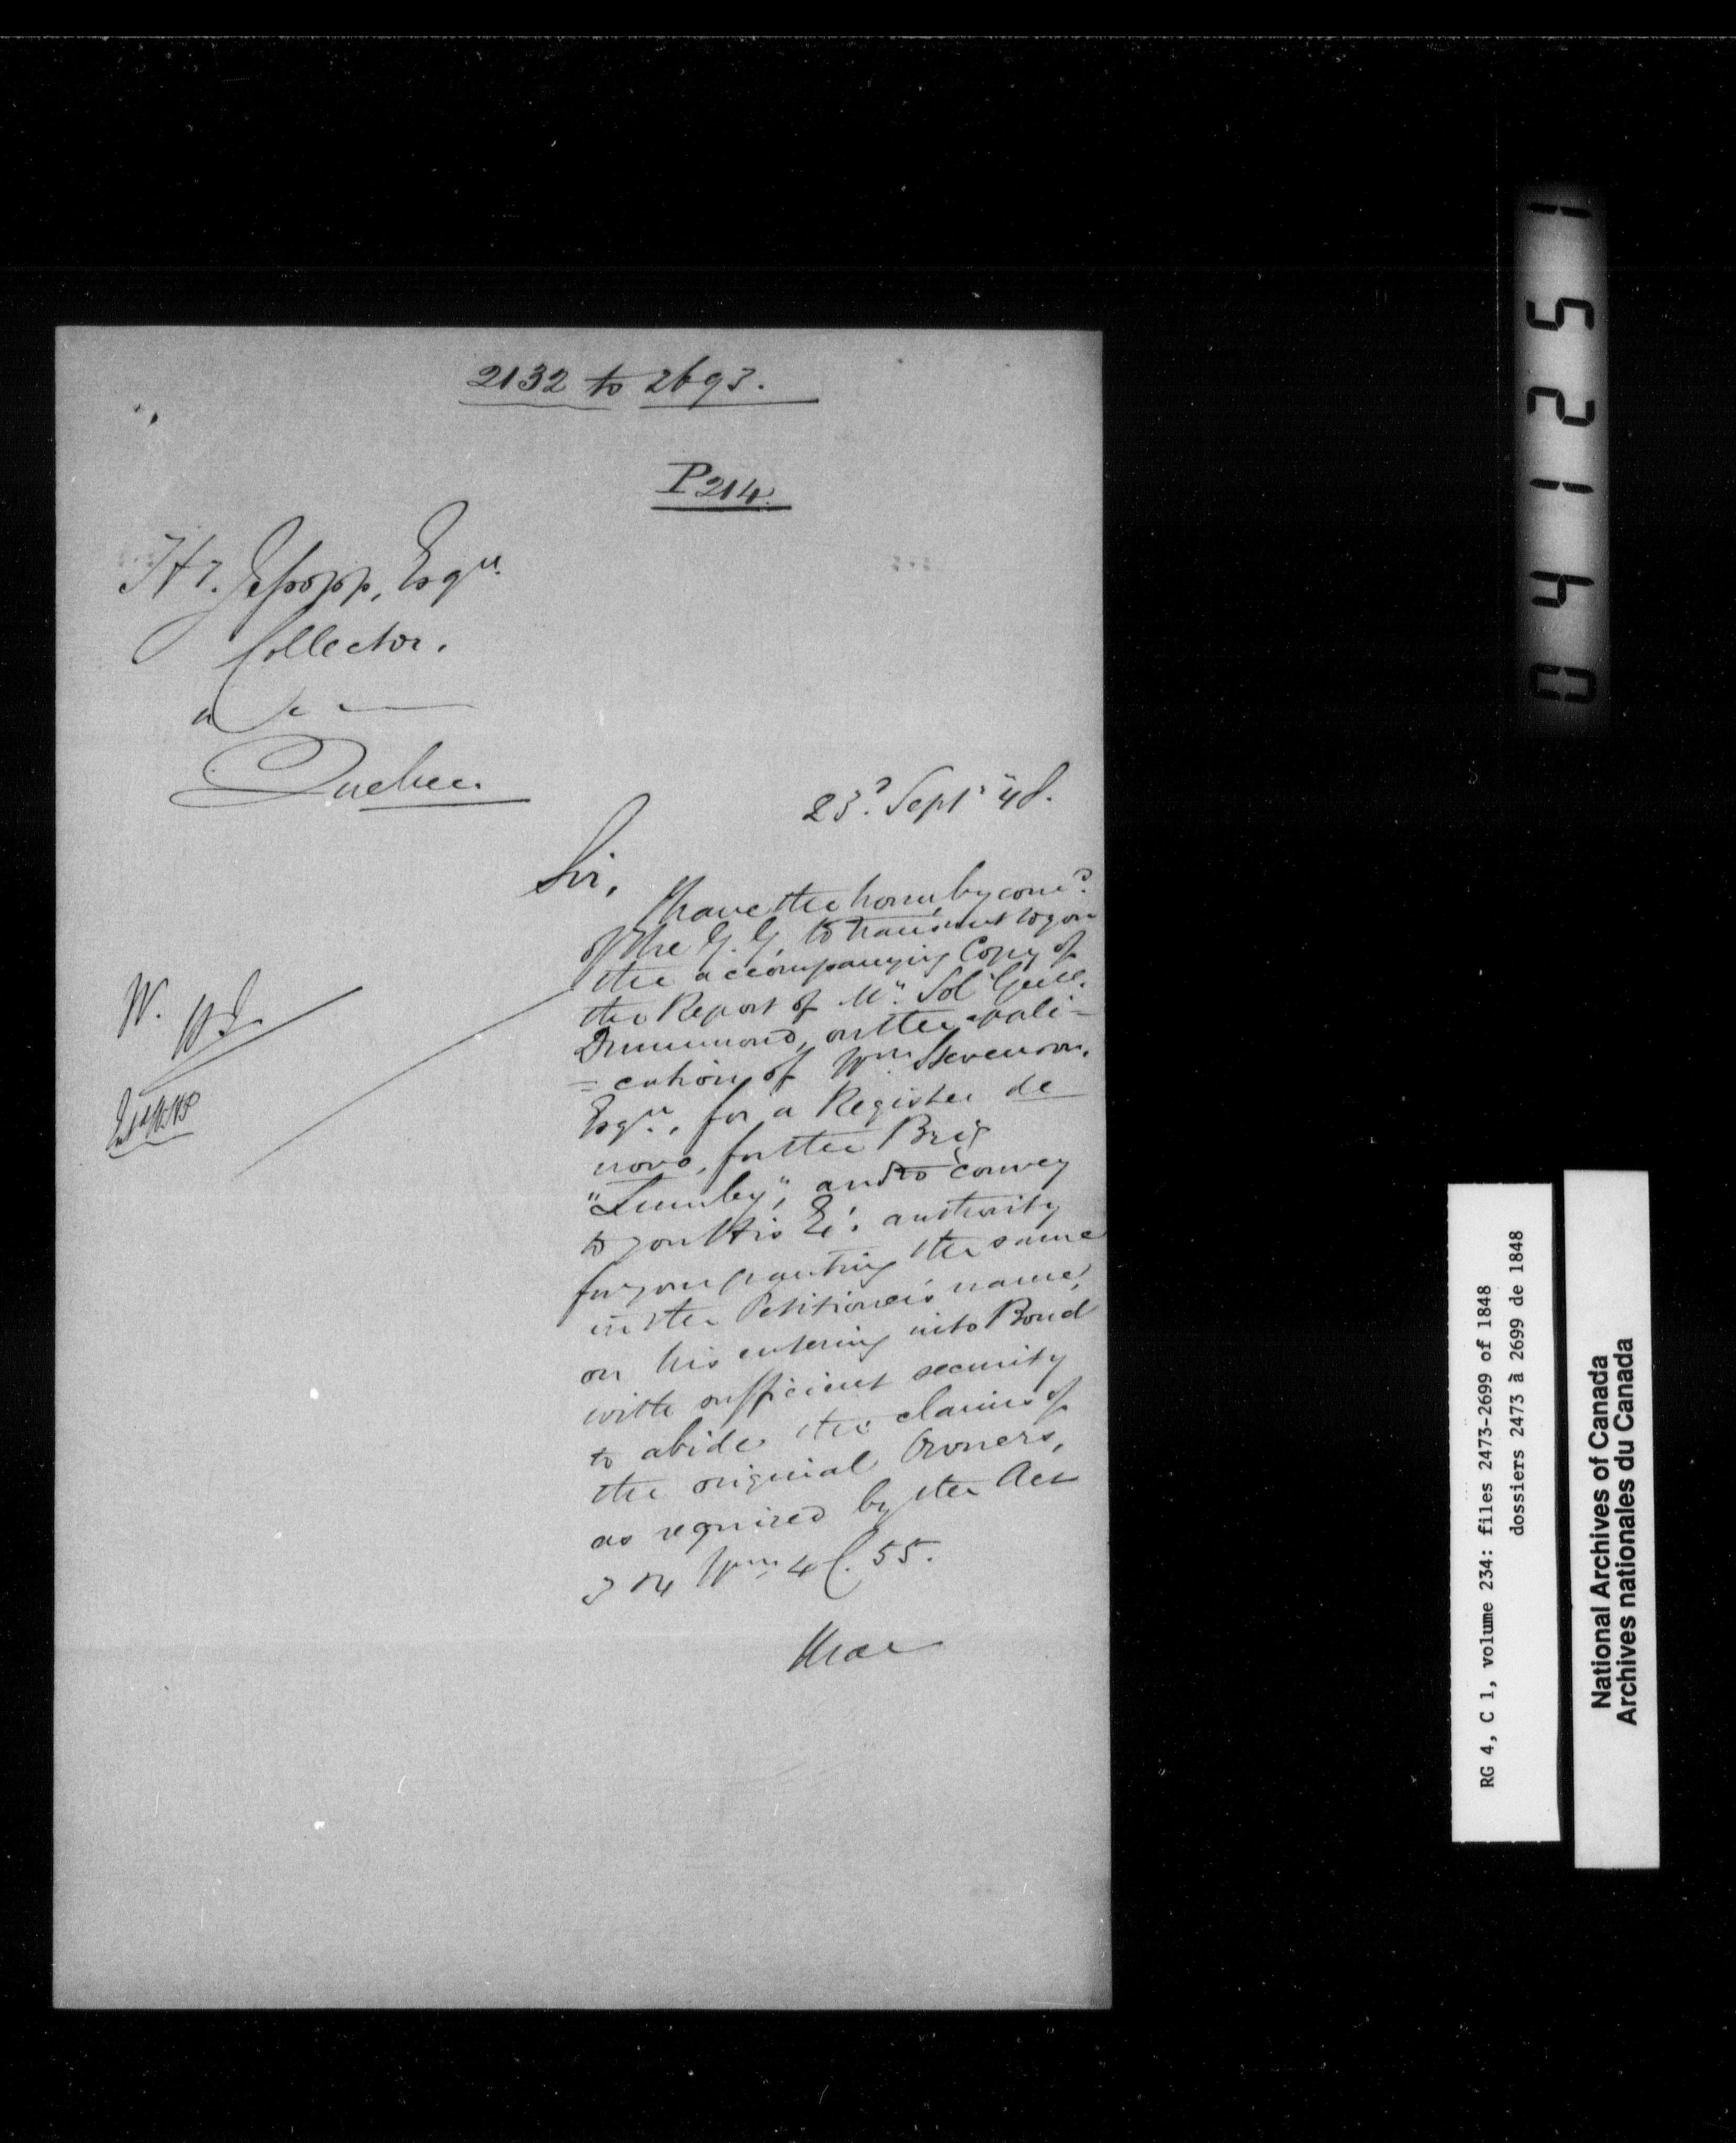 2132 to 2693.
P 214.
H. Jessopp, Esqre.
Collector.
&c &c
Quebec.
23d. Septr 48.
Sir,
I have the honor by comd.
of the G. G. to transmit to you
the accompanying Copy of
the Report of Mr. Sol. Genl.
Drummond, on the appli=
=cation of Wm. Stevenson,
Esqre., for a Register de
novo, for the Brig
"Lumley", and to convey
to you His E's. authority
for your granting the same
in the Petitioner's name,
on his entering into Bond
with sufficient security
to abide the claims of
the original Owners,
as required by the Act
3 & 4 Wm. 4 C. 55.
I hae
W.
0 4 1 2 5 1
RG 4, C 1, volume 234: files 2473-2699 of 1848
dossiers 2473 à 2699 de 1848
National Archives of Canada
Archives nationales du Canada